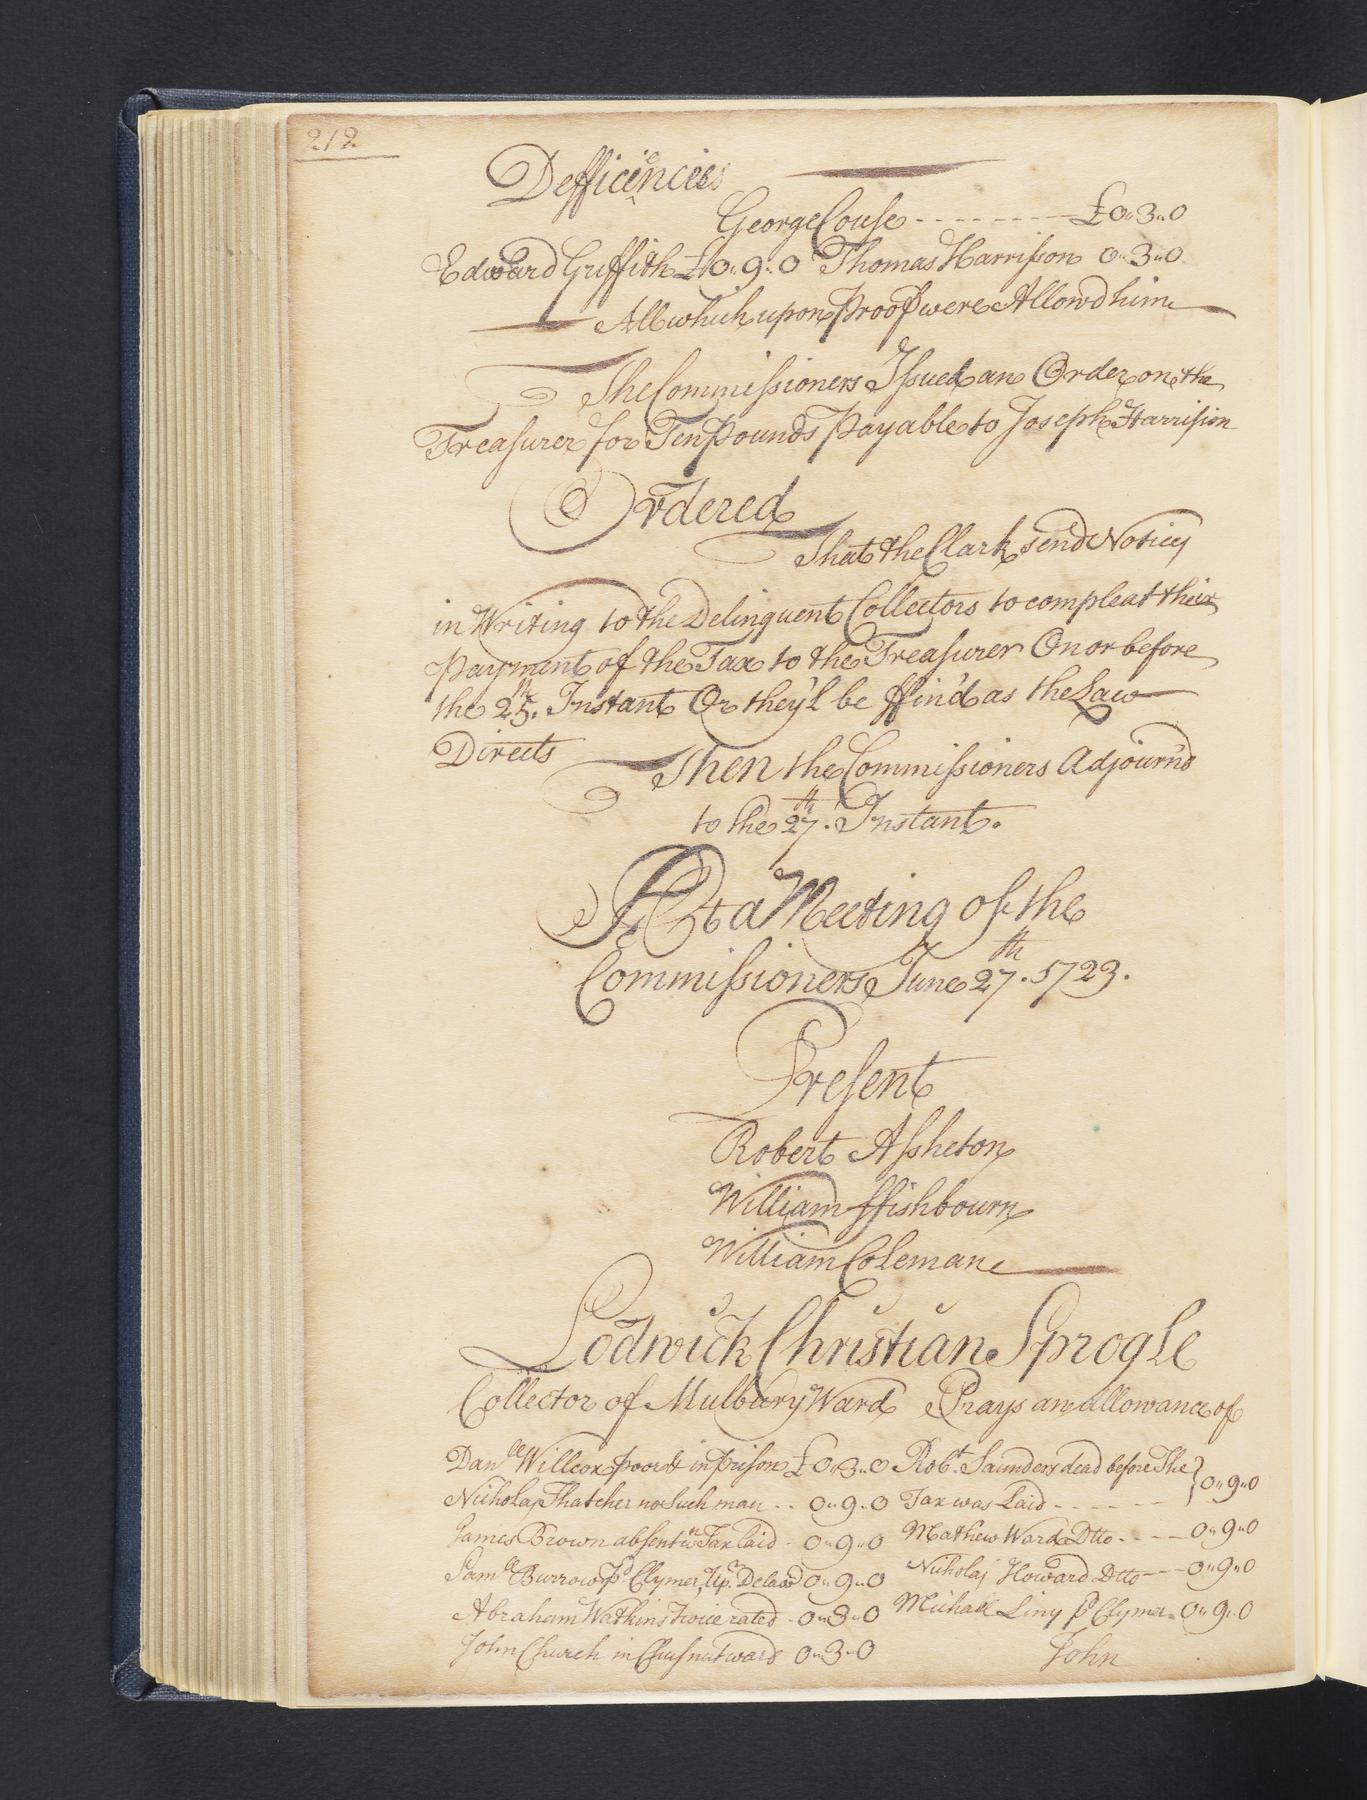 212
Defficiencies
George Couse - - - - - - - - - £0..3..0
Edward Griffith £0..9..0 Thomas Harrisson 0..3..0
All which upon Proof were Allowd him
The Commissioners Issued an Order on the
Treasurer for Ten Pounds Payable to Joseph Harrision
Ordered
That the Clark send Notices
in Writing to the Delinquent Collectors to compleat their
Payment of the Tax to the Treasurer On or before
the 25th. Instant Or they'l be ffin'd as the Law
Directs
Then the Commissioners Adjourn'd
to the 27th. Instant.
At a Meeting of the
Commissioners June 27th. 1723.
Present
Robert Assheton
William ffishbourn
William Coleman
Lodwick Christian Sprogle
Collector of Mulbury Ward Prays an allowance of
Danll Willcox poor & in prison £0..3..0 Robt. Saunders dead before The
Nicholas Thatcher no Such man .. 0..9..0 Tax was Laid - - - - - - 0..9..0
James Brown absent wn Tax laid - 0..9..0 Mathew Ward Dtto - - - - 0..9..0
Samll Burrows Clymer Up. 0..9..0 Nicholas Howard Dtto - - - 0..9..0
Abraham Watkins twice rated - 0..3..0 Michael Liny Clymer 0..9..0
John Church in Chesnut ward 0..3..0 John